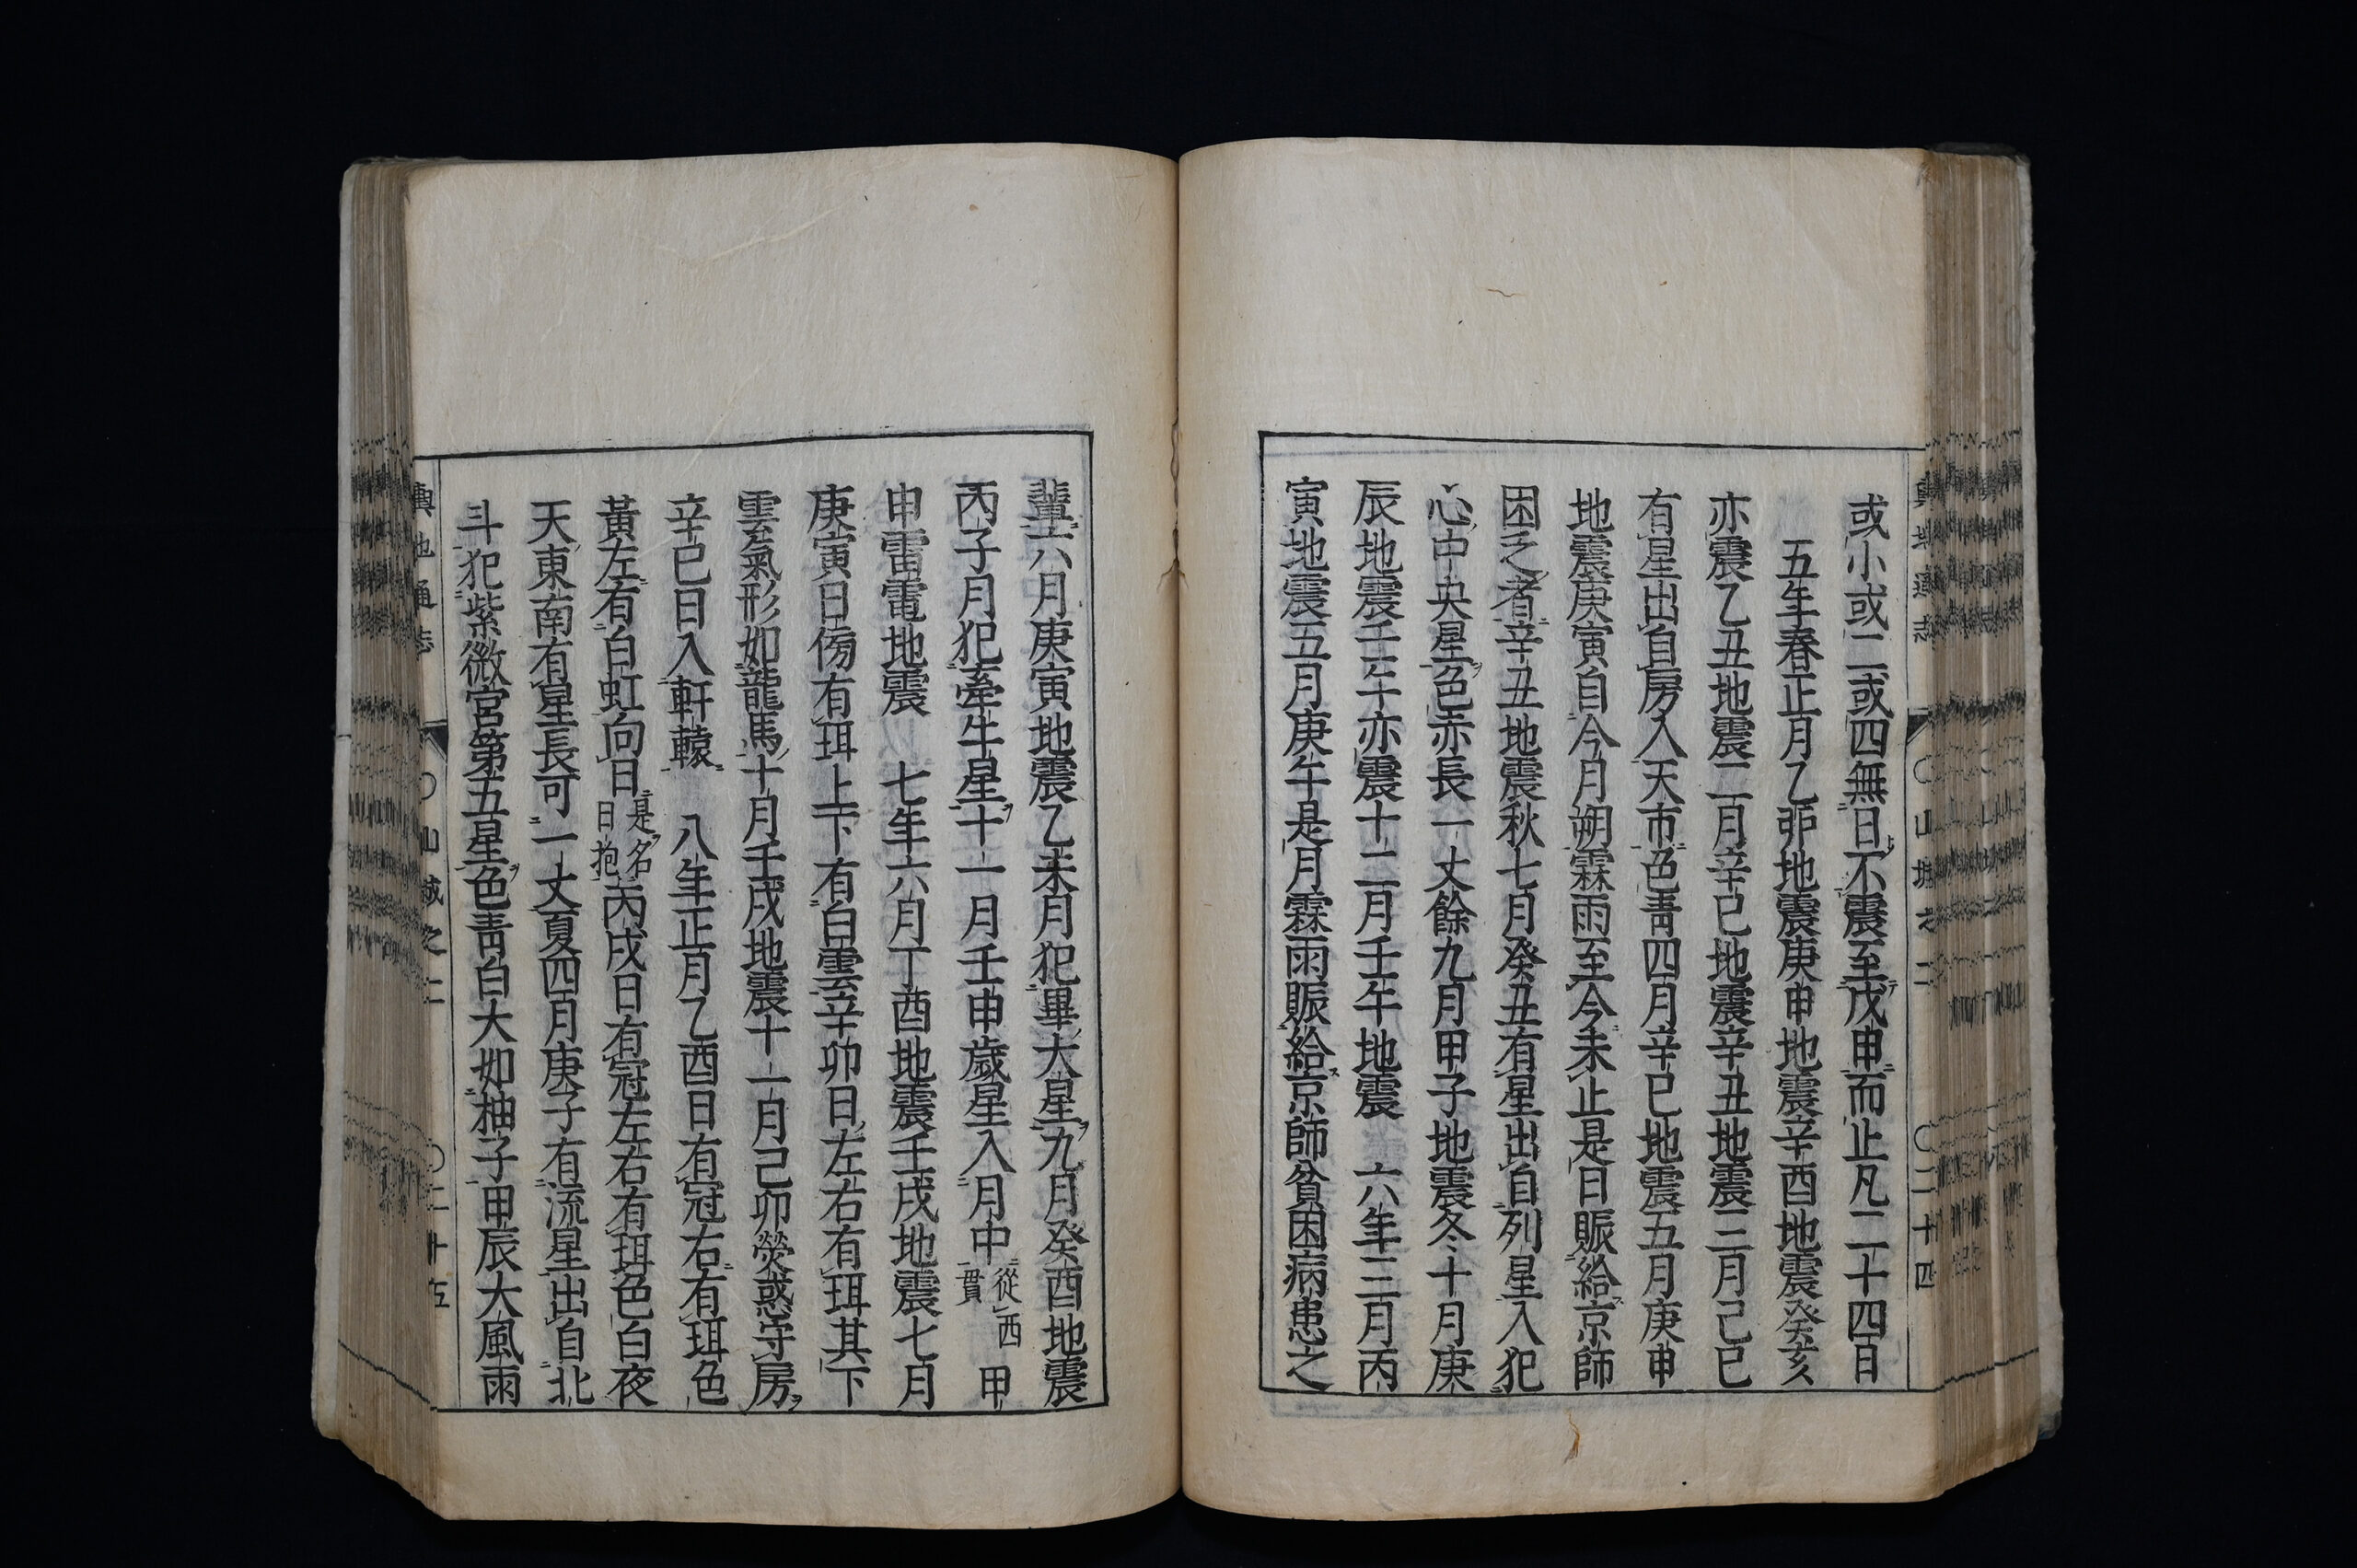 或小或二或四無日不震至戊申而止凡二十四日
五年春正月乙卯地震庚申地震辛酉地震癸亥
亦震乙丑地震二月辛己地震辛丑地震三月己巳
有星出自房入天市色靑四月辛巳地震五月庚申
地震庚寅自今月朔霖雨至今未止是日賑給京師
困乏者辛丑地震秋七月癸丑有星出自列星入犯
心中央星色赤長一丈餘九月甲子地震冬十月庚
辰地震壬午亦震十二月壬午地震　六年三月丙
寅地震五月庚午是月霖雨賑給京師貧困病患之
輩六月庚寅地震乙未月犯畢大星九月癸酉地震
丙子月犯牽牛星十一月壬申歲星入月中從西貫甲
申雷電地震　七年六月丁酉地震壬戌地震七月
庚寅日傍有珥上下有白雲辛卯日左右有珥其下
雲氣形如龍馬十月壬戌地震十一月己卯熒惑守房
辛巳日入軒轅　八年正月乙酉日有冠右有珥色
黃左有白虹向日是名日抱丙戌日有冠左右有珥色白夜
天東南有星長可一丈夏四月庚子有流星出自北
斗犯紫微宮第五星色靑白大如柚子甲辰大風雨
輿地通志
○山城之二
○二十五